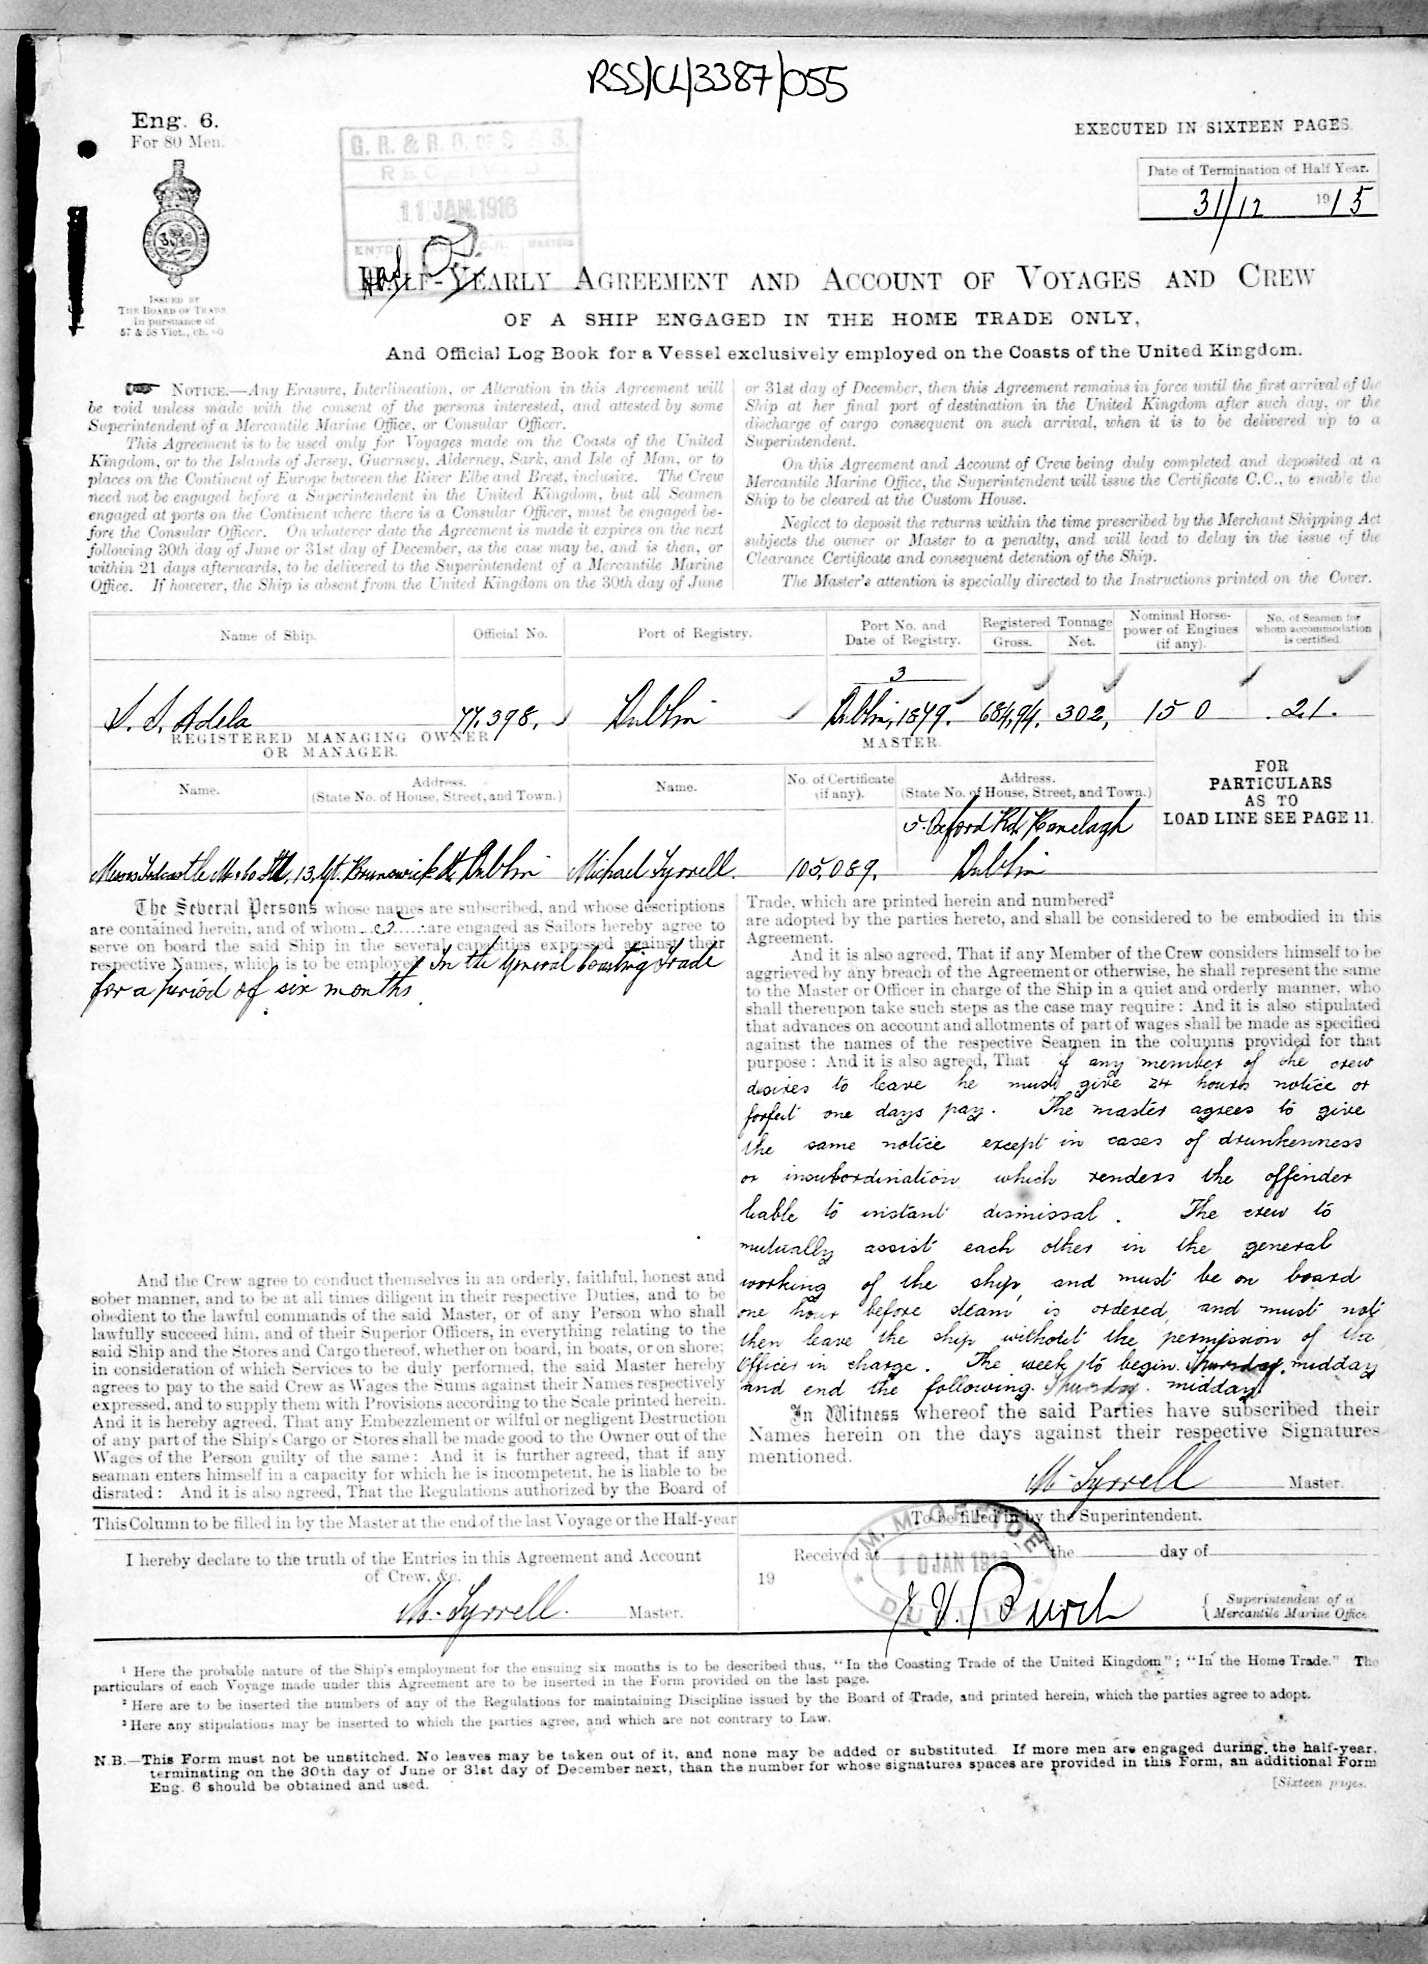 RSS/CL/3387/055
Eng. 6.
For 80 Men.
EXECUTED IN SIXTEEN PAGES.
G. R. & R. O. OF S. & S.
RECEIVED
11 JAN. 1916
Date of Termination of Half Year.
31/12 1915
ISSUED BY
THE BOARD OF TRADE
In pursuance of
57 & 58 Vict., ch. 60
HALF-YEARLY AGREEMENT AND ACCOUNT OF VOYAGES AND CREW
OF A SHIP ENGAGED IN THE HOME TRADE ONLY,
And Official Log Book for a Vessel exclusively employed on the Coasts of the United Kingdom.
NOTICE.—Any Erasure, Interlineation, or Alteration in this Agreement will
be void unless made with the consent of the persons interested, and attested by some
Superintendent of a Mercantile Marine Office, or Consular Officer.
This Agreement is to be used only for Voyages made on the Coasts of the United
Kingdom, or to the Islands of Jersey, Guernsey, Alderney, Sark, and Isle of Man, or to
places on the Continent of Europe between the River Elbe and Brest, inclusive. The Crew
need not be engaged before a Superintendent in the United Kingdom, but all Seamen
engaged at ports on the Continent where there is a Consular Officer, must be engaged be-
fore the Consular Officer. On whatever date the Agreement is made it expires on the next
following 30th day of June or 31st day of December, as the case may be, and is then, or
within 21 days afterwards, to be delivered to the Superintendent of a Mercantile Marine
Office. If however, the Ship is absent from the United Kingdom on the 30th day of June
or 31st day of December, then this Agreement remains in force until the first arrival of the
Ship at her final port of destination in the United Kingdom after such day, or the
discharge of cargo consequent on such arrival, when it is to be delivered up to a
Superintendent.
On this Agreement and Account of Crew being duly completed and deposited at a
Mercantile Marine Office, the Superintendent will issue the Certificate C.C., to enable the
Ship to be cleared at the Custom House.
Neglect to deposit the returns within the time prescribed by the Merchant Shipping Act
subjects the owner or Master to a penalty, and will lead to delay in the issue of the
Clearance Certificate and consequent detention of the Ship.
The Master's attention is specially directed to the Instructions printed on the Cover.
Name of Ship. Official No. Port of Registry. Port No. and Date of Registry. Registered Tonnage Gross. Net. Nominal Horse-power of Engines (if any). No. of Seamen for whom accommodation is certified.
3
S. S. Adela 77,398. Dublin Dublin, 1879. 684,94. 302, 150 21.
REGISTERED MANAGING OWNER OR MANAGER.
MASTER.
Name. Address. (State No. of House, Street, and Town.) Name. No. of Certificate (if any). Address. (State No. of House, Street, and Town.)
FOR
PARTICULARS
AS TO
LOAD LINE SEE PAGE 11.
5. Oxford Rd. Ranelagh
13, Gt. Brunswick St Dublin Michael Tyrrell. 105,089. Dublin
The Several Persons whose names are subscribed, and whose descriptions
are contained herein, and of whom are engaged as Sailors hereby agree to
serve on board the said Ship in the several capacities expressed against their
respective Names, which is to be employed In the General Coasting Trade
for a period of six months.
And the Crew agree to conduct themselves in an orderly, faithful, honest and
sober manner, and to be at all times diligent in their respective Duties, and to be
obedient to the lawful commands of the said Master, or of any Person who shall
lawfully succeed him, and of their Superior Officers, in everything relating to the
said Ship and the Stores and Cargo thereof, whether on board, in boats, or on shore;
in consideration of which Services to be duly performed, the said Master hereby
agrees to pay to the said Crew as Wages the Sums against their Names respectively
expressed, and to supply them with Provisions according to the Scale printed herein.
And it is hereby agreed, That any Embezzlement or wilful or negligent Destruction
of any part of the Ship's Cargo or Stores shall be made good to the Owner out of the
Wages of the Person guilty of the same: And it is further agreed, that if any
seaman enters himself in a capacity for which he is incompetent, he is liable to be
disrated: And it is also agreed, That the Regulations authorized by the Board of
Trade, which are printed herein and numbered²
are adopted by the parties hereto, and shall be considered to be embodied in this
Agreement.
And it is also agreed, That if any Member of the Crew considers himself to be
aggrieved by any breach of the Agreement or otherwise, he shall represent the same
to the Master or Officer in charge of the Ship in a quiet and orderly manner, who
shall thereupon take such steps as the case may require: And it is also stipulated
that advances on account and allotments of part of wages shall be made as specified
against the names of the respective Seamen in the columns provided for that
purpose: And it is also agreed, That if any member of the crew
desires to leave he must give 24 hours notice or
forfeit one days pay. The master agrees to give
the same notice except in cases of drunkenness
or insubordination which renders the offender
liable to instant dismissal. The crew to
mutually assist each other in the general
working of the ship, and must be on board
one hour before steam is ordered and must not
then leave the ship without the permission of the
Officer in charge. The week to begin Thursday. midday
and end the following Thursday. midday.
In Witness whereof the said Parties have subscribed their
Names herein on the days against their respective Signatures
mentioned.
M. Tyrrell Master.
This Column to be filled in by the Master at the end of the last Voyage or the Half-year
I hereby declare to the truth of the Entries in this Agreement and Account
of Crew, &c.
M. Tyrrell. Master.
To be filled in by the Superintendent.
Received at the day of
19
M. M. OFFICE
10 JAN 1916
DUBLIN
Burch
Superintendent of a
Mercantile Marine Office
¹ Here the probable nature of the Ship's employment for the ensuing six months is to be described thus, "In the Coasting Trade of the United Kingdom"; "In the Home Trade." The
particulars of each Voyage made under this Agreement are to be inserted in the Form provided on the last page.
² Here are to be inserted the numbers of any of the Regulations for maintaining Discipline issued by the Board of Trade, and printed herein, which the parties agree to adopt.
³ Here any stipulations may be inserted to which the parties agree, and which are not contrary to Law.
N.B.—This Form must not be unstitched. No leaves may be taken out of it, and none may be added or substituted. If more men are engaged during the half-year,
terminating on the 30th day of June or 31st day of December next, than the number for whose signatures spaces are provided in this Form, an additional Form
Eng. 6 should be obtained and used.
[Sixteen pages.